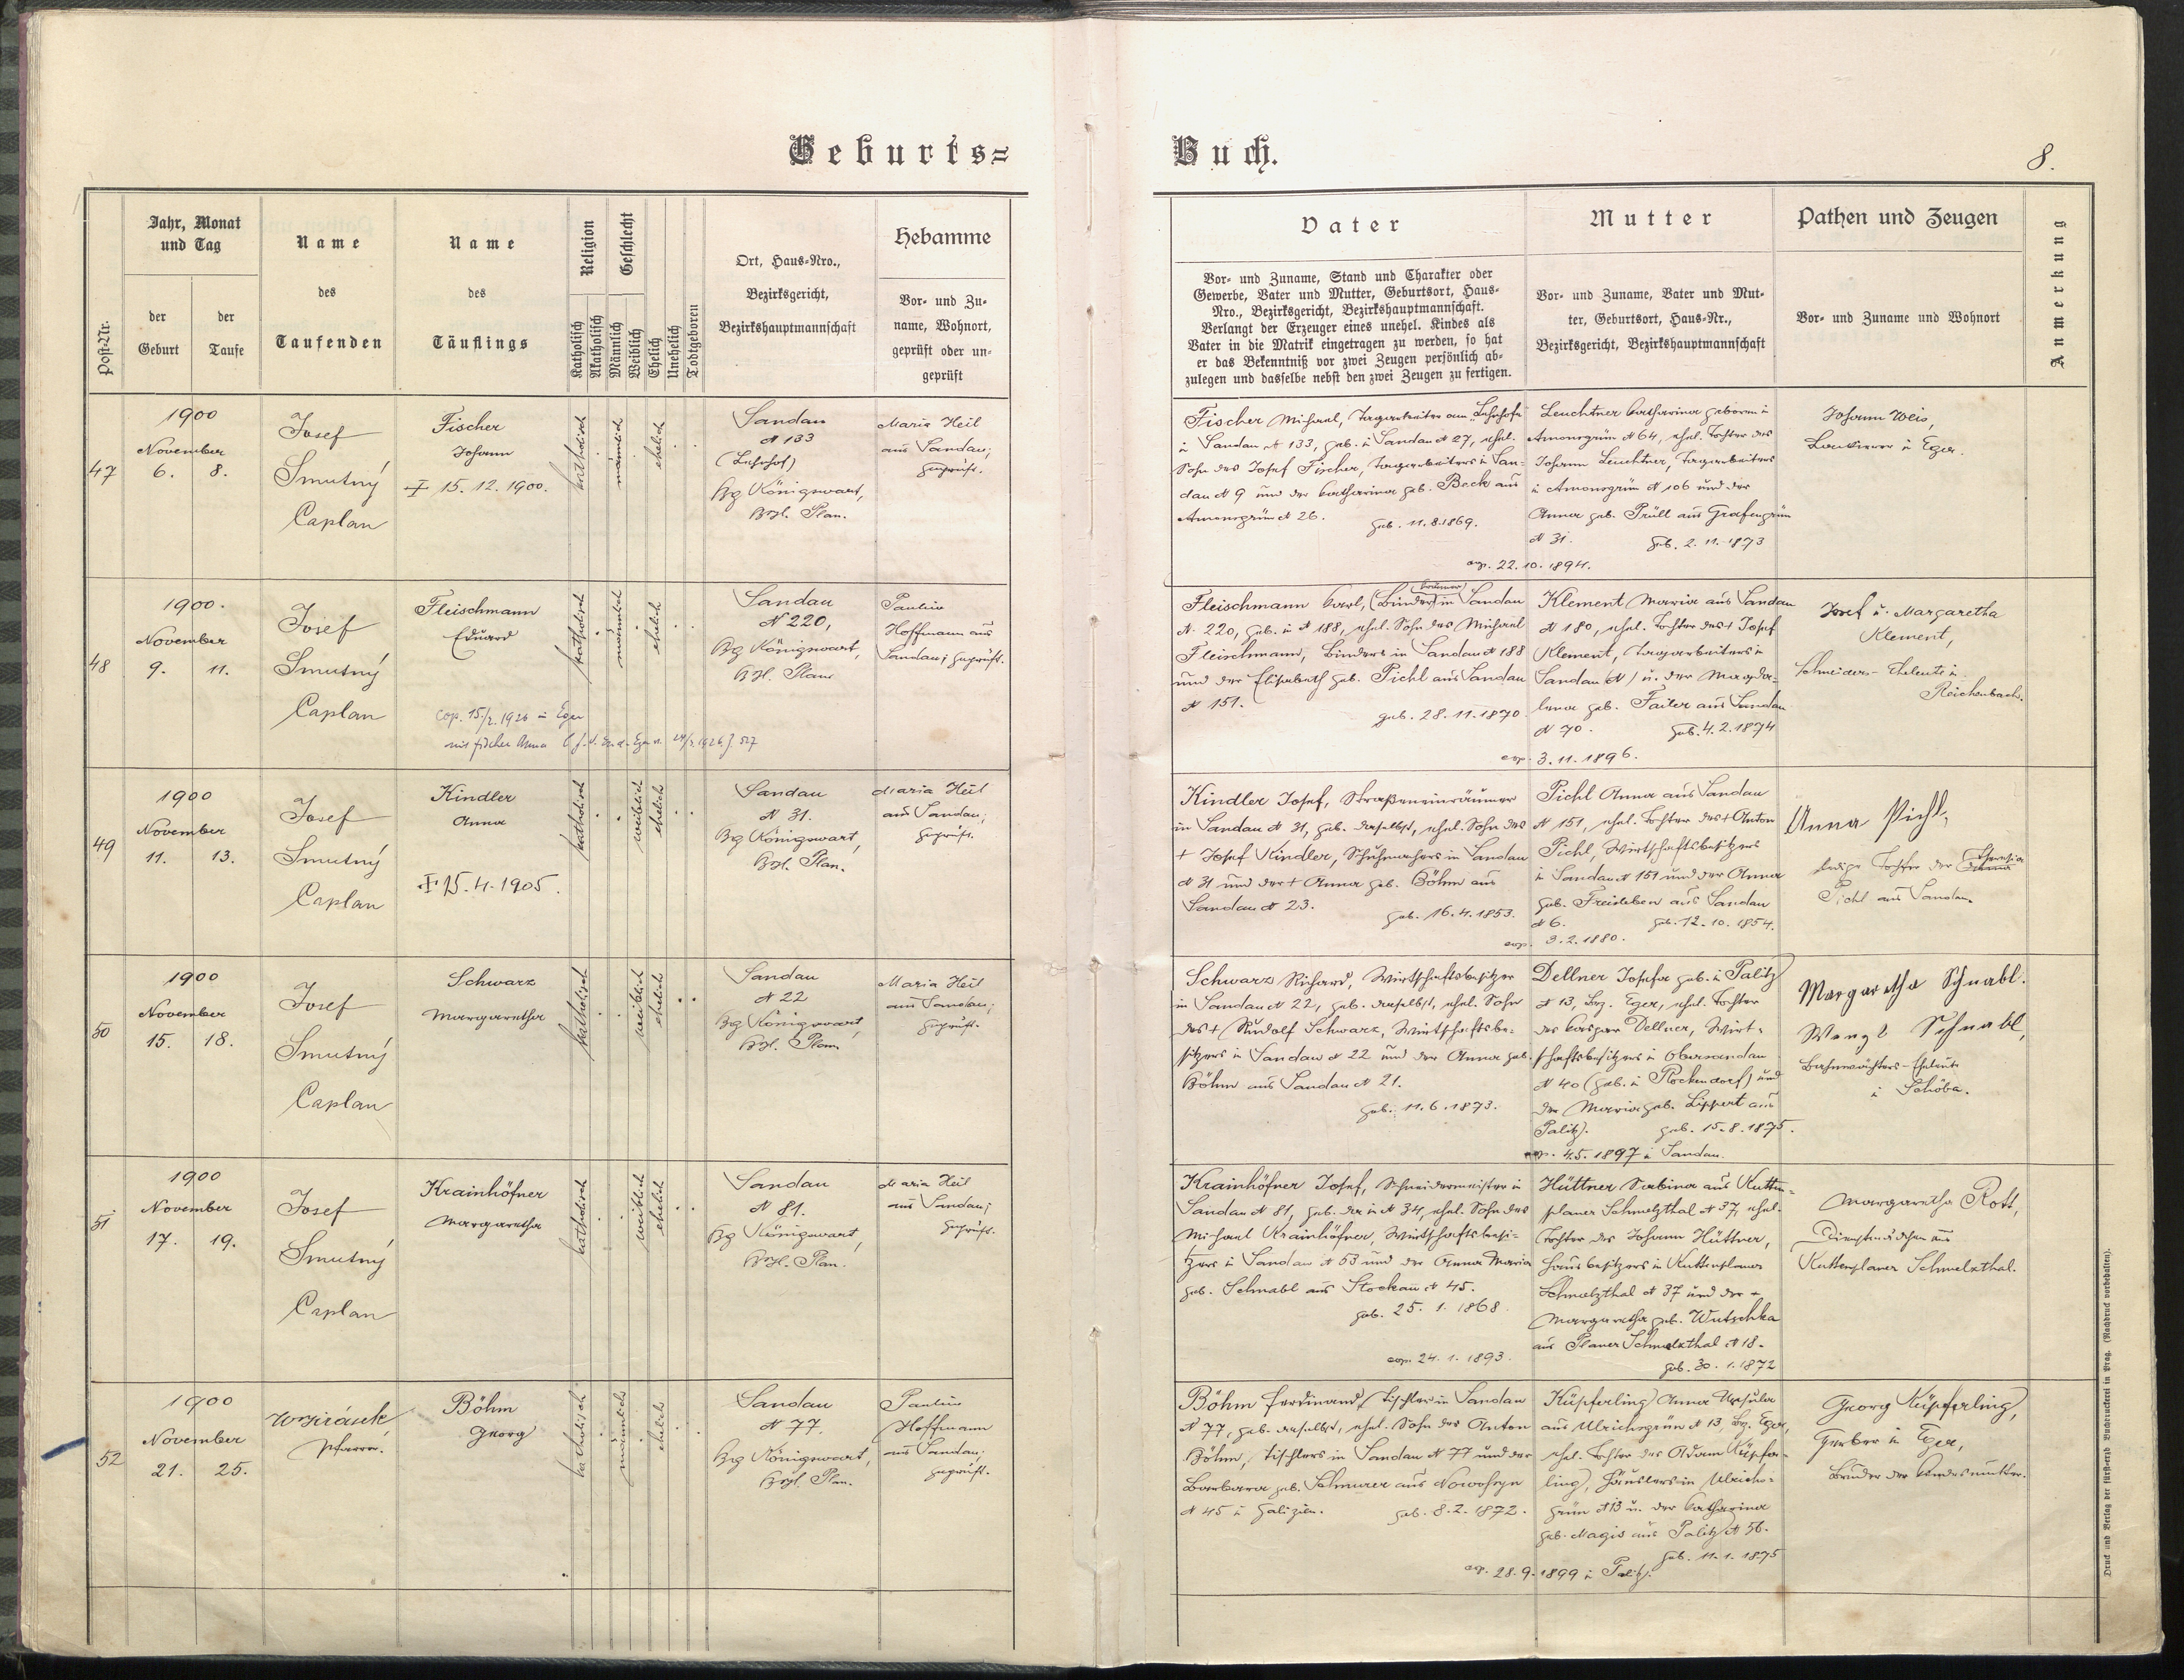 Geburts=
Buch.
8.
Post-Nr.
Jahr, Monat
und Tag
der
Geburt
der
Taufe
Name
des
Taufenden
Name
des
Täuflings
Religion
Katholisch
Akatholisch
Geschlecht
Männlich
Weiblich
Ehelich
Unehelich
Todtgeboren
Ort, Haus-Nro.,
Bezirksgericht,
Bezirkshauptmannschaft
Hebamme
Vor- und Zu-
name, Wohnort,
geprüft oder un-
geprüft
Vater
Vor- und Zuname, Stand und Charakter oder
Gewerbe, Vater und Mutter, Geburtsort, Haus-
Nro., Bezirksgericht, Bezirkshauptmannschaft.
Verlangt der Erzeuger eines unehel. Kindes als
Vater in die Matrik eingetragen zu werden, so hat
er das Bekenntniß vor zwei Zeugen persönlich ab-
zulegen und dasselbe nebst den zwei Zeugen zu fertigen.
Mutter
Vor- und Zuname, Vater und Mut-
ter, Geburtsort, Haus-Nr.,
Bezirksgericht, Bezirkshauptmannschaft
Pathen und Zeugen
Vor- und Zuname und Wohnort
Anmerkung
47
1900
November
6. 8.
Josef
Smutný
Caplan
Fischer
Johann
15. 12. 1900.
katholisch
männlich
ehelich
Sandau
N 133
(Bahnhof)
Bg Königswart,
Bzh. Plan.
Maria Heil
aus Sandau;
geprüft.
Fischer Michael, Tagarbeiter am Bahnhofe
in Sandau N 133, geb. in Sandau N 27, ehel.
Sohn des Josef Fischer, Tagarbeiters in San-
dau N 9 und der Katharina geb. Beck aus
Amonsgrün N 26.
geb. 11.8.1869.
Leuchtner Katharina geboren in
Amonsgrün N 64, ehel. Tochter des
Johann Leuchtner, Tagarbeiters
in Amonsgrün N 106 und der
Anna geb. Prüll aus Grafengrün
N 31.
geb. 2. 11. 1873
cop. 22. 10. 1894.
Johann Weis,
in Eger.
48
1900.
November
9. 11.
Josef
Smutný
Caplan
Fleischmann
Eduard
cop. 15/2. 1926 in Eger
mit Fischer Anna
katholisch
männlich
ehelich
Sandau
N 220,
Bg Königswart,
Bzh. Plan
Pauline
Hoffmann aus
Sandau; geprüft.
Fleischmann Karl, (Binder) in Sandau
N. 220, geb. in N 188, ehel. Sohn des Michael
Fleischmann, Binders in Sandau N 188
und der Elisabeth geb. Pichl aus Sandau
N 151.
geb. 28. 11. 1870
Klement Maria aus Sandau
N 180, ehel. Tochter des + Josef
Klement, Tagarbeiters in
Sandau (N ) u. der Magda-
lena geb. Failer aus Sandau
N 70
geb. 4. 2. 1874
cop. 3. 11. 1896.
Josef u. Margaretha
Klement,
Schneiders-Eheleute in
Reichenbach.
49
1900
November
11. 13.
Josef
Smutný
Caplan
Kindler
Anna
15. 4. 1905.
katholisch
weiblich
ehelich
Sandau
N 31.
Bg Königswart,
Bzh. Plan.
Maria Heil
aus Sandau;
geprüft.
Kindler Josef, Straßeneinräumer
in Sandau N 31, geb. daselbst, ehel. Sohn des
+ Josef Kindler, Schuhmachers in Sandau
N 31 und der + Anna geb. Böhm aus
Sandau N 23.
geb. 16. 4. 1853.
Pichl Anna aus Sandau
N 151, ehel. Tochter des + Anton
Pichl, Wirtschaftsbesitzers
in Sandau N 151 und der Anna
geb. Freisleben aus Sandau
N 6.
geb. 12. 10. 1854.
cop. 3. 2. 1880.
Anna Pichl,
ledige Tochter der Theresia
Pichl aus Sandau.
50
1900
November
15. 18.
Josef
Smutný
Caplan
Schwarz
Margaretha
katholisch
weiblich
ehelich
Sandau
N 22
Bg Königswart,
Bzh. Plan.
Maria Heil
aus Sandau;
geprüft.
Schwarz Richard, Wirtschaftsbesitzer
in Sandau N 22, geb. daselbst, ehel. Sohn
des + Rudolf Schwarz, Wirtschaftsbe-
sitzers in Sandau N 22 und der Anna geb.
Böhm aus Sandau N 21.
geb. 11. 6. 1873.
Dellner Josefa geb. in Palitz
N 13, Bez. Eger, ehel. Tochter
des Kaspar Dellner, Wirt-
schaftsbesitzers in Obersandau
N 40 (geb. in Rockendorf) und
der Maria geb. Lippert aus
Palitz.
geb. 15. 8. 1875.
cop. 4.5. 1897 in Sandau.
Margaretha Schnabl.
Wenzl Schnabl,
Bahnwächters-Eheleute
in Schöba.
51
1900
November
17. 19.
Josef
Smutný
Caplan
Krainhöfner
Margaretha
katholisch
weiblich
ehelich
Sandau
N 81.
Bg Königswart,
Bzh. Plan.
Maria Heil
aus Sandau;
geprüft.
Krainhöfner Josef, Schneidermeister in
Sandau N 81, geb. in N 34, ehel. Sohn des
Michael Krainhöfner, Wirtschaftsbesi-
tzers in Sandau N 53 und der Anna Maria
geb. Schnabl aus Stockau N 45.
geb. 25. 1. 1868
Hüttner Sabina aus Kutten-
planer Schmelzthal N 37, ehel.
Tochter des Johann Hüttner,
Hausbesitzers in Kuttenplaner
Schmelzthal N 37 und der +
Margaretha geb. Wutschka
aus Planer Schmelzthal N 18.
geb. 30. 1. 1872
cop. 24. 1. 1893.
Margaretha Rott,
Dienstmädchen aus
Kuttenplaner Schmelzthal.
52
1900
November
21. 25.
Pfarrer.
Böhm
Georg
katholisch
männlich
ehelich
Sandau
N 77.
Bg Königswart,
Bzh. Plan.
Pauline
Hoffmann
aus Sandau;
geprüft.
Böhm Ferdinand, Tischler in Sandau
N 77, geb. daselbst, ehel. Sohn des Anton
Böhm, Tischlers in Sandau N 77 und der
Barbara geb. Schmurer aus
N 45 in Galizien.
geb. 8. 2. 1872.
Küpferling Anna Ursula
aus Ulrichsgrün N 13, Bez. Eger,
ehel. Tochter des Adam Küpfer-
ling, Häuslers in Ulrichs-
grün N 13 u. der Katharina
geb. Magis aus Palitz N 56.
geb. 11. 1. 1875
cop. 28. 9. 1899 in Palitz.
Georg Küpferling,
Gerber in Eger,
Bruder der Kindesmutter.
Druck und Verlag der fürst-erzb Buchdruckerei in Prag. (Nachdruck vorbehalten).